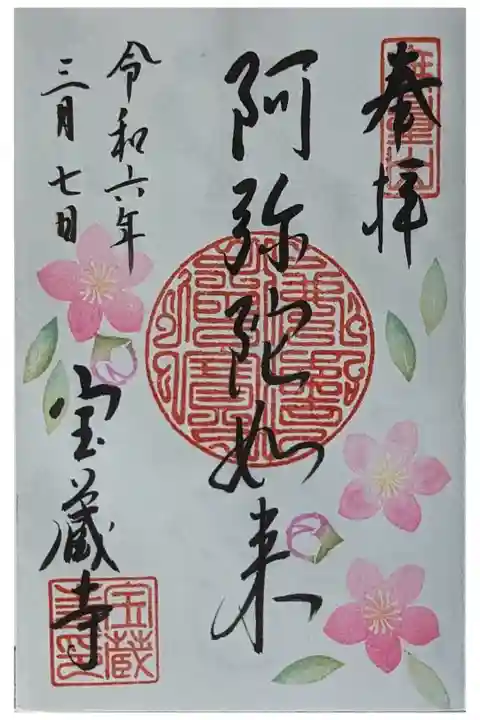 奉拝
阿弥陀如来
令和六年
三月七日
宝蔵寺